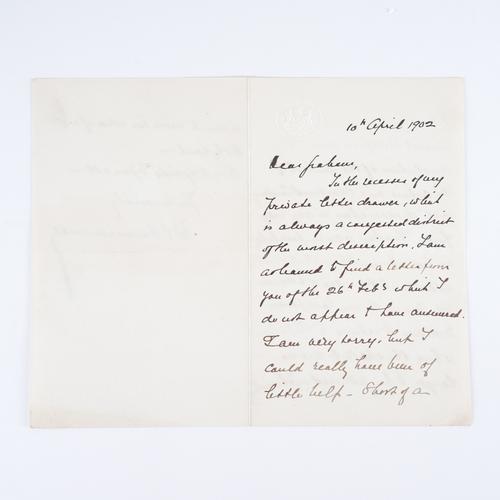 10th April 1902
Dear Graham,
In the recesses of my
private letter drawer, which
is always a congested district
of the worst description, I am
ashamed to find a letter from
you of the 26th Feby which I
do not appear to have answered.
I am very sorry, but I
could really have been of
little help - Short of a